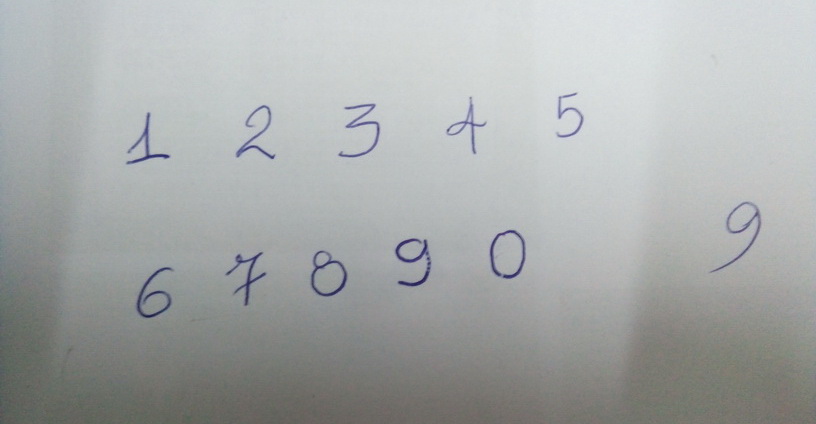 1 2 3 4 5
6 7 8 9 0 9